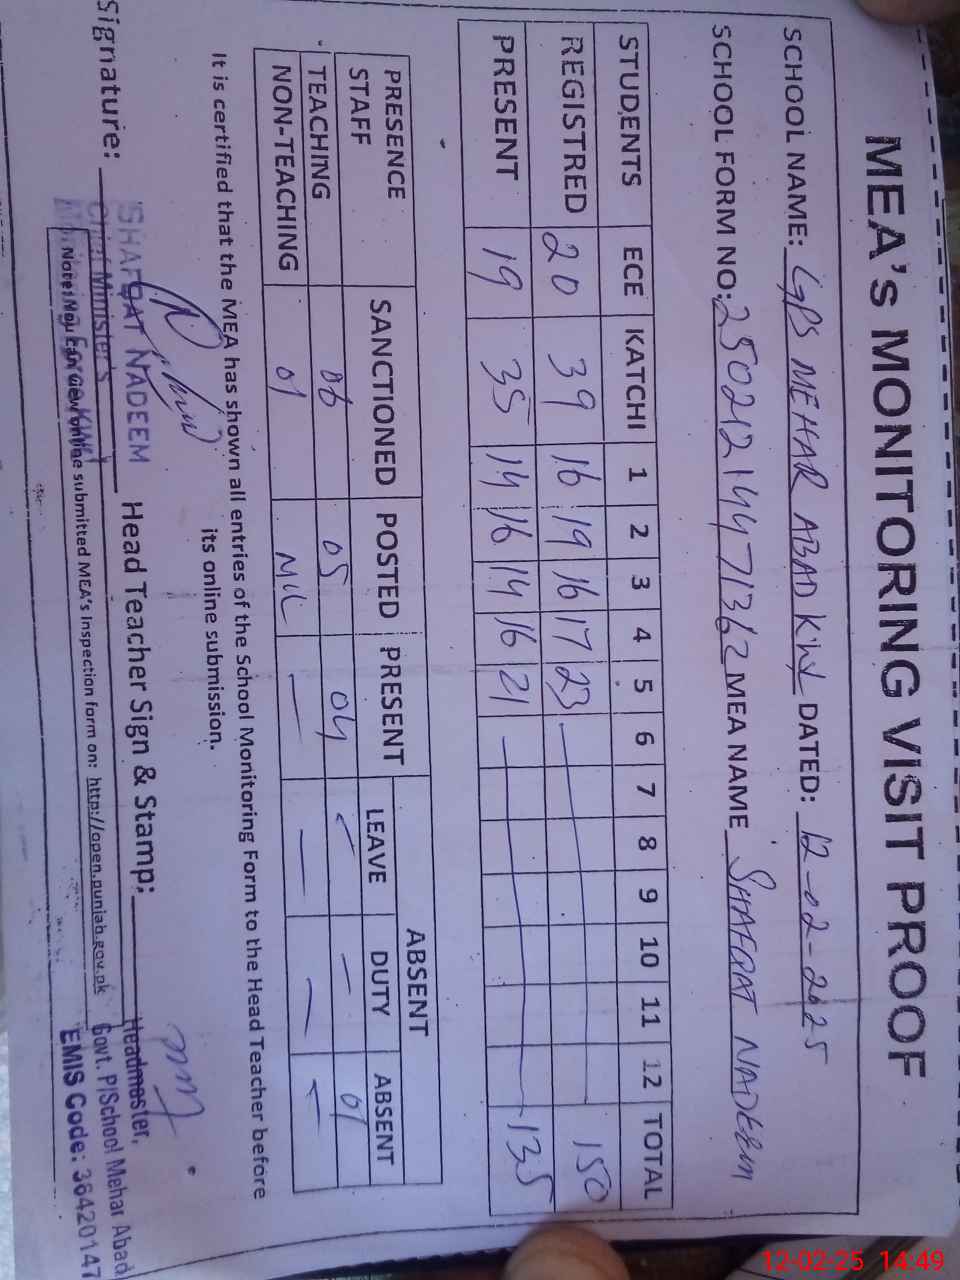 MEA's MONITORING VISIT PROOF
SCHOOL NAME: GPS MEHAR ABAD KWL DATED: 12-02-2025
SCHOOL FORM NO: 250212144771362 MEA NAME SHAFQAT NADEEM
STUDENTS ECE KATCHI 1 2 3 4 5 6 7 8 9 10 11 12 TOTAL
REGISTRED 20 39 16 19 16 17 23 150
PRESENT 19 35 14 16 14 16 21 135
PRESENCE STAFF SANCTIONED POSTED PRESENT ABSENT
LEAVE DUTY ABSENT
TEACHING 06 05 04 - - 01
NON-TEACHING 01 NIL - - - -
It is certified that the MEA has shown all entries of the School Monitoring Form to the Head Teacher before
its online submission.
Signature: Head Teacher Sign & Stamp:
SHAFQAT NADEEM
Chief Minister's
Note: You can view online submitted MEA's Inspection form on: http://open.punjab.gov.pk
Headmaster,
Govt. P/School Mehar Abad
EMIS Code: 36420147
12-02-25 14:49